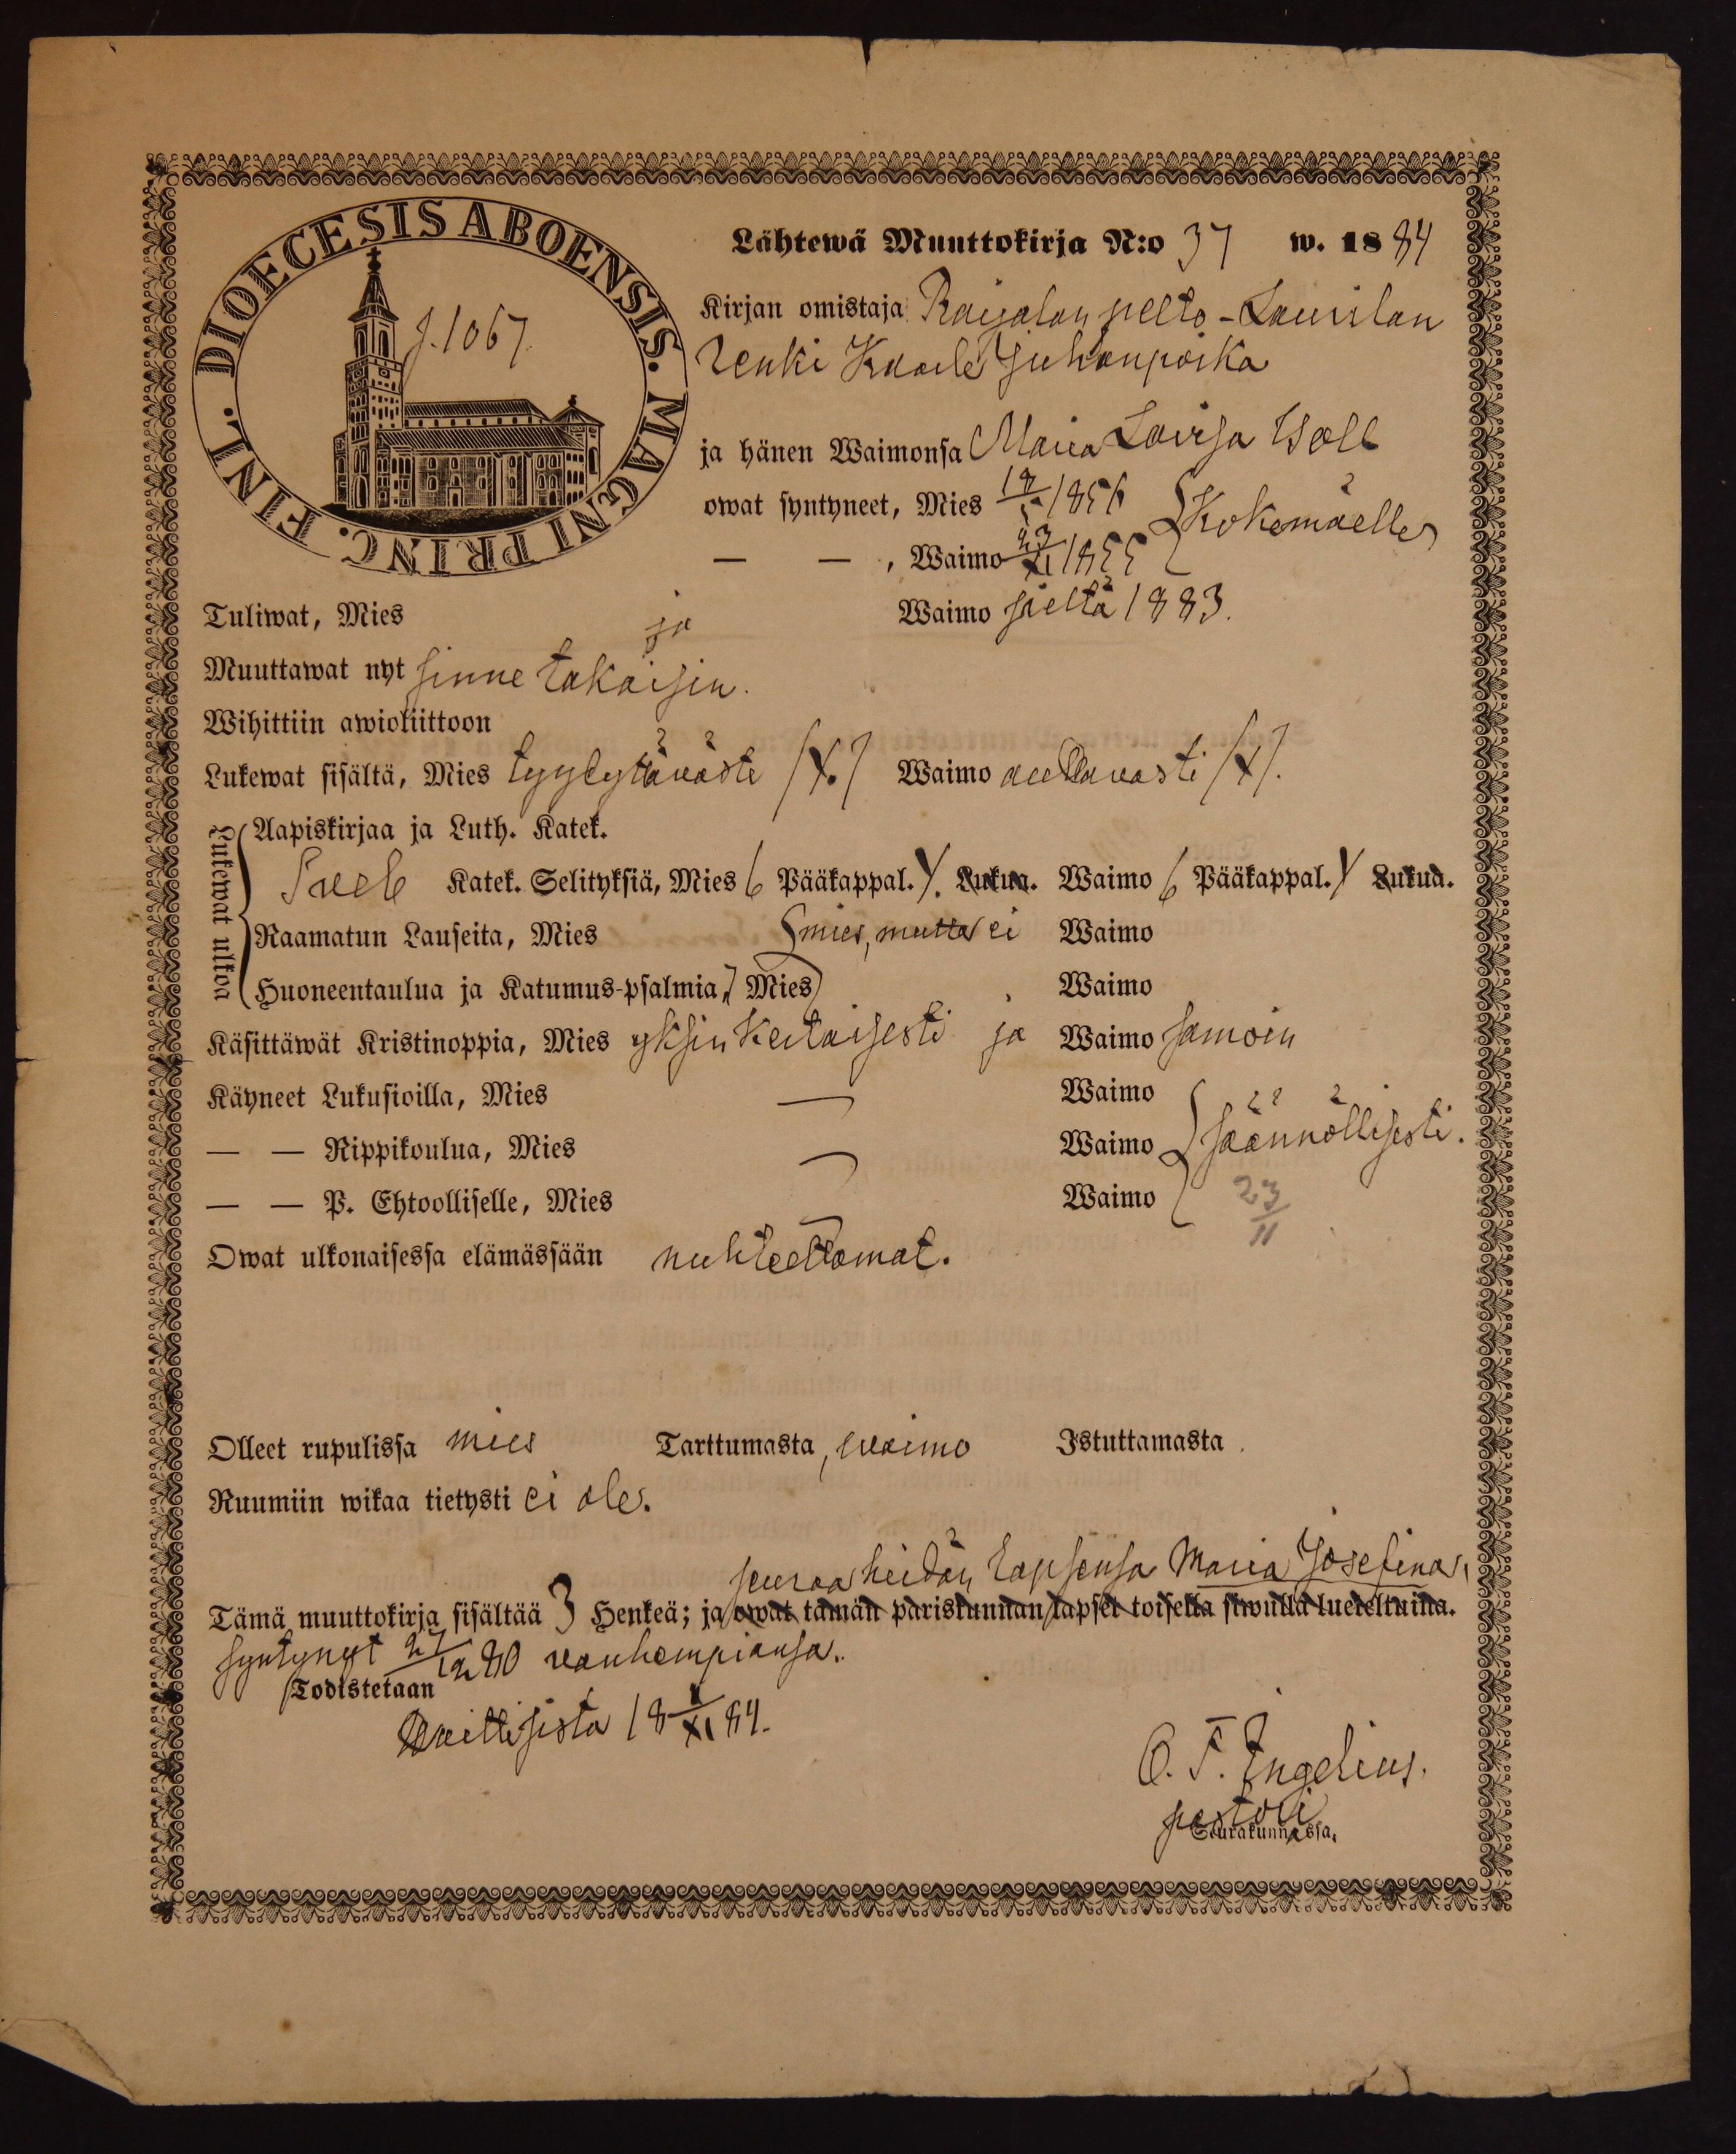 DIOECESIS ABOENSIS. MAGNI PRINC. FINL.
J. 1067.
Lähtewä Muuttokirja N:o 37 w. 1884
Kirjan omistaja Raijalan pelto-Laurilan
renki Kaarle Juhonpoika
ja hänen Waimonsa Maria Lovisa
owat syntyneet, Mies 1856 Kokemäellä
— — , Waimo 23/XI 1855
Tuliwat, Mies ja Waimo sieltä 1883.
Muuttawat nyt sinne takaisin.
Wihittiin awioliittoon
Lukewat sisältä, Mies tyydytäväste /X./ Waimo auttavasti /X/.
Lukewat ulkoa
Aapiskirjaa ja Luth. Katek.
Sveb Katek. Selityksiä, Mies 6 Pääkappal. Y. Lukua. Waimo 6 Pääkappal. Y Lukua.
Raamatun Lauseita, Mies mies, mutta ei Waimo
Huoneentaulua ja Katumus-psalmia, Mies Waimo
Käsittäwät Kristinoppia, Mies yksinkertaisesti ja Waimo samoin
Käyneet Lukusioilla, Mies — Waimo
— — Rippikoulua, Mies — Waimo säännöllisesti.
— — P. Ehtoolliselle, Mies — Waimo
23/11
Owat ulkonaisessa elämässään nuhteettomat.
Olleet rupulissa mies Tarttumasta, waimo Istuttamasta
Ruumiin wikaa tietysti ei ole.
seuraa heidän lapsensa Maria Josefina,
Tämä muuttokirja sisältää 3 Henkeä; ja owat tämän pariskunnan lapset toisella siwulla lueteltuina.
syntynyt 27/12 80 vanhempiansa.
Todistetaan
18 XI 84.
O. F. Ingelius.
pastori
Seurakunnassa.